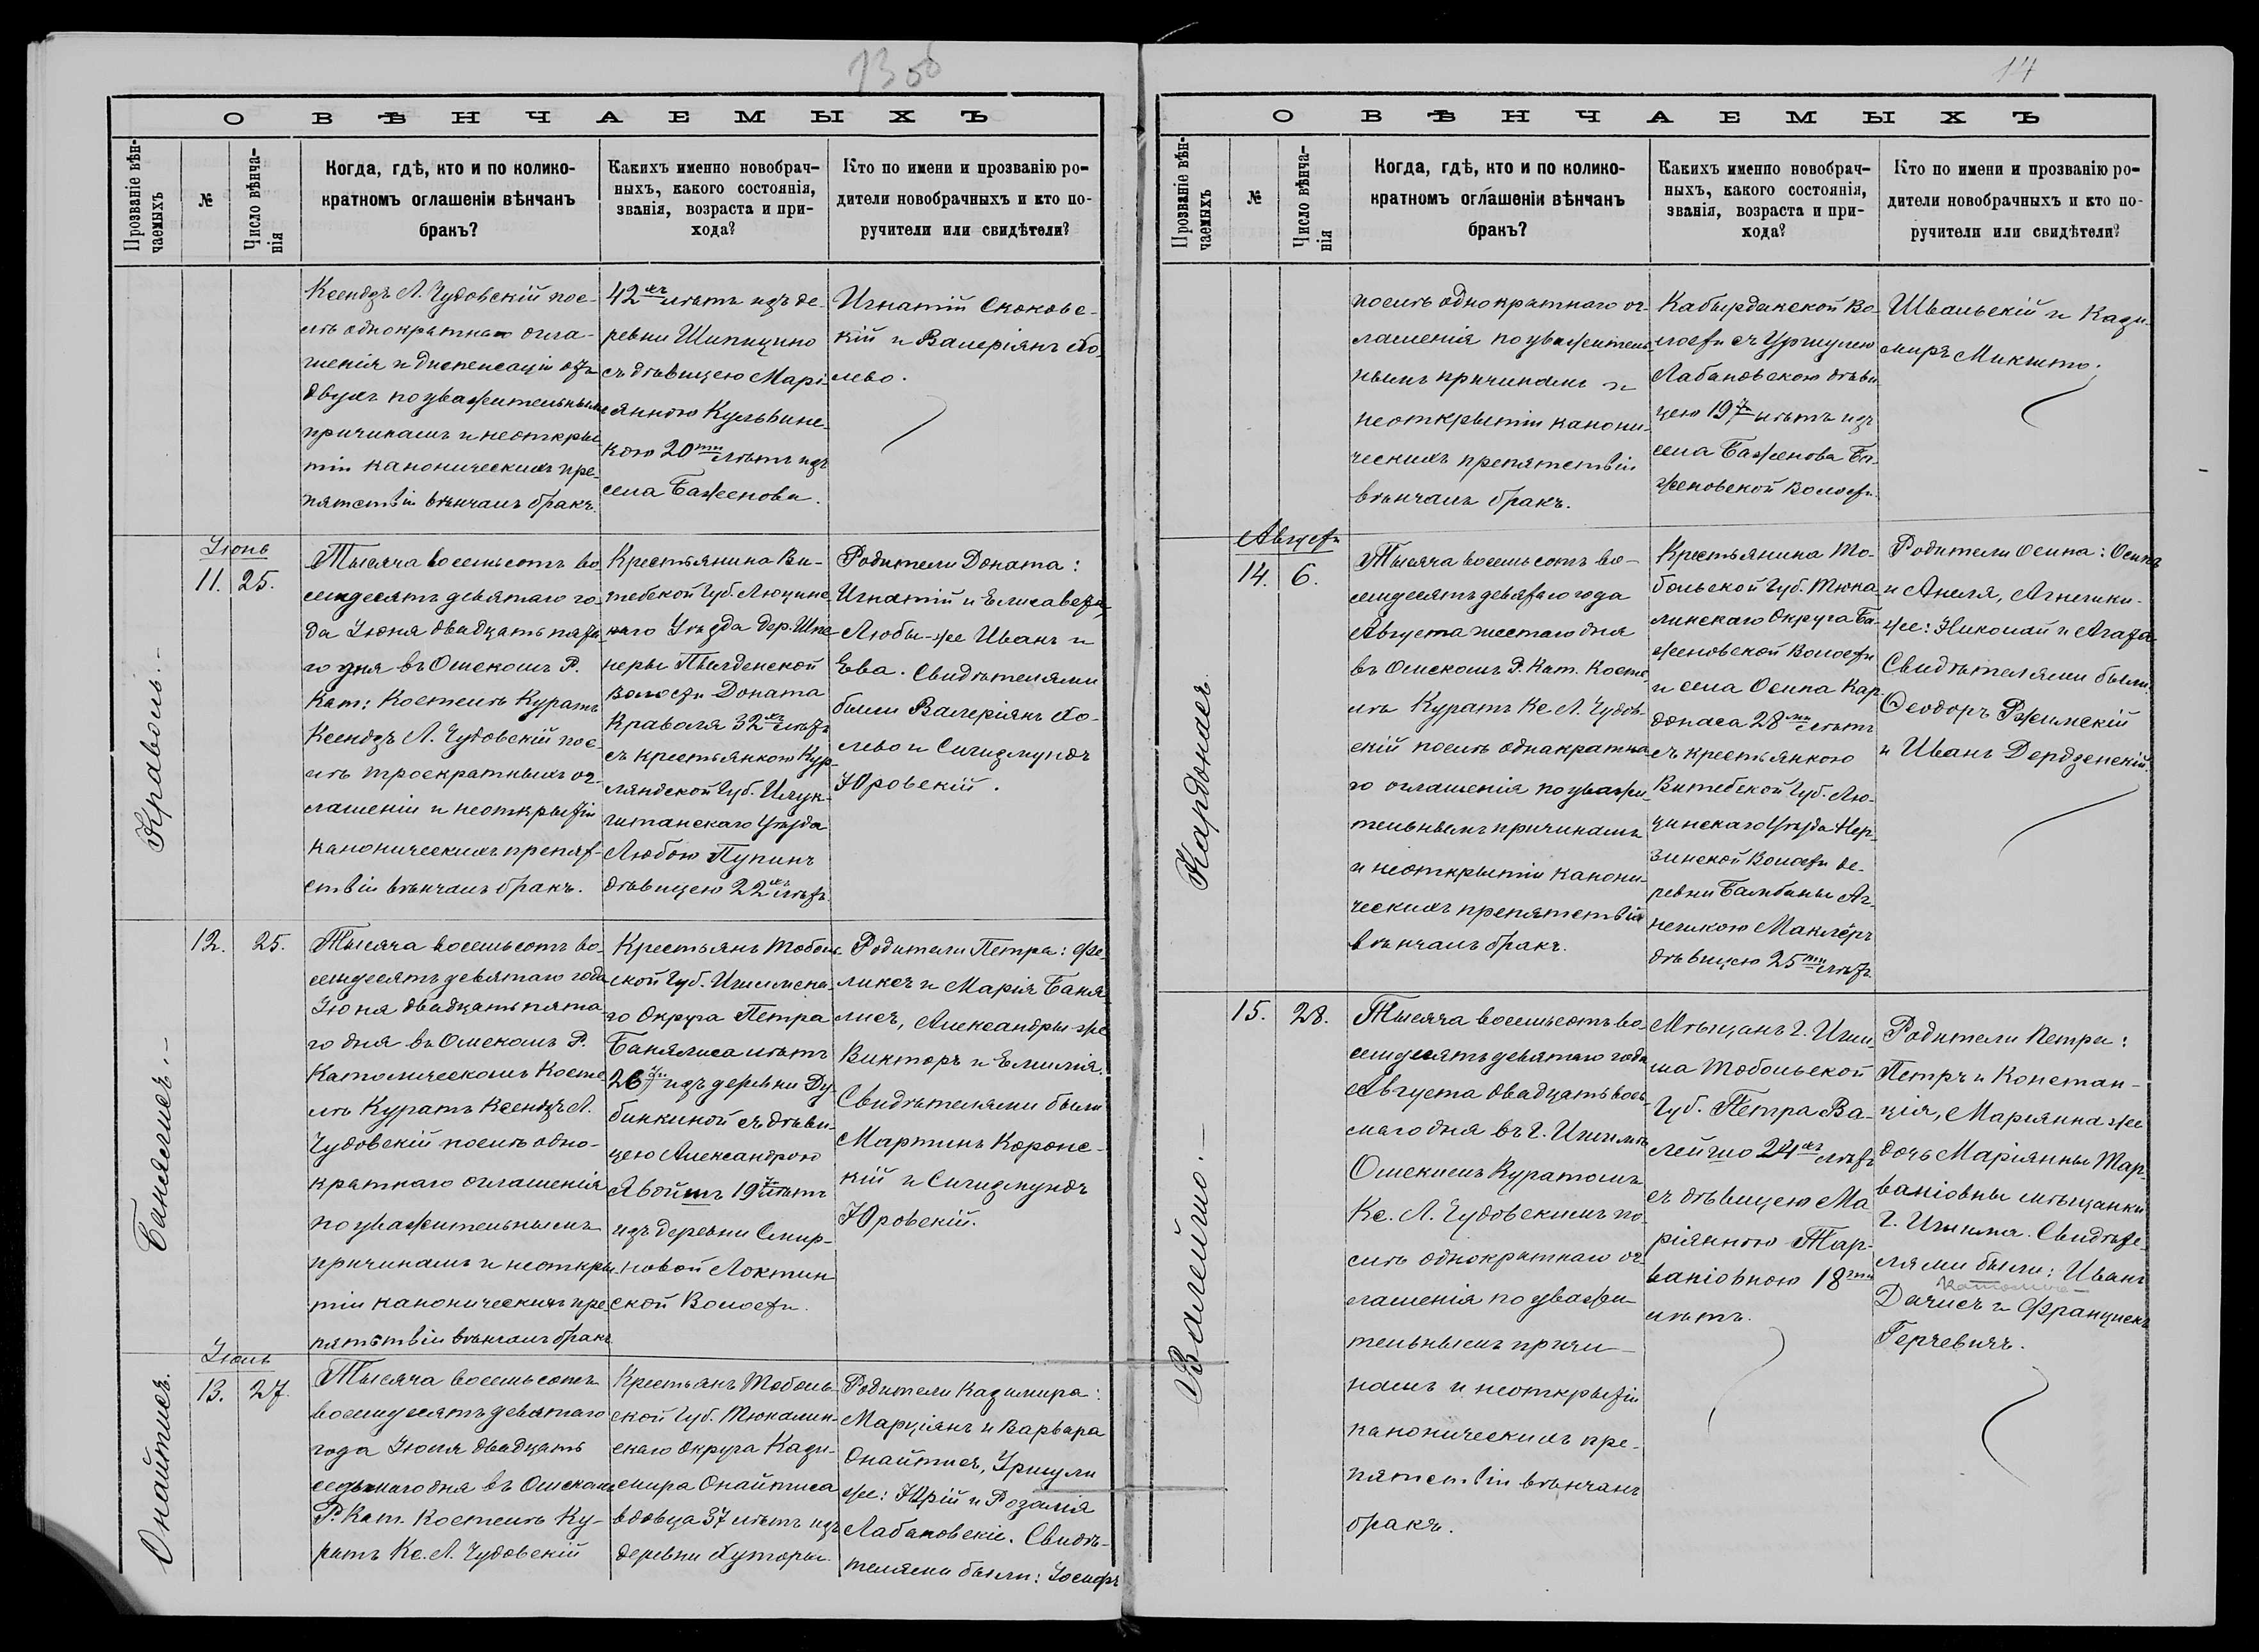 13 об
О ВѢНЧАЕМЫХЪ
Прозваніе вѣн-
чаемыхъ
№
Число вѣнча-
нія
Когда, гдѣ, кто и по колико-
кратномъ оглашеніи вѣнчанъ
бракъ?
Какихъ именно новобрач-
ныхъ, какого состоянія,
званія, возраста и при-
хода?
Кто по имени и прозванію ро-
дители новобрачныхъ и кто по-
ручители или свидѣтели?
Ксендзъ Л. Чудовскій пос-
лѣ однократнаго огла-
шенія и диспенсаціи отъ
двухъ по уважительнымъ
причинамъ и неоткры-
тіи каноническихъ пре-
пятствій вѣнчалъ бракъ.
42хъ лѣтъ изъ де-
ревни Шипицино
съ дѣвицею Марі-
янною Кульвинс-
кою 20ти лѣтъ изъ
села Баженова.
Игнатій Скоковс-
кій и Валеріянъ Хо-
лево.
Краваль.-
Іюнь
11. 25.
Тысяча восемьсотъ во-
семдесятъ девятаго го-
да Іюня двадцать пята-
го дня въ Омскомъ Р.
Кат: Костелѣ Куратъ
Ксендзъ Л. Чудовскій пос-
лѣ троекратныхъ ог-
лашеній и неоткрытіи
каноническихъ препят-
ствій вѣнчалъ бракъ.
Крестьянина Ви-
тебской Губ. Люцинс-
каго Уѣзда дер. Шке-
неры Пылденской
Волости Доната
Краваля 32хъ лѣтъ
съ крестьянкою Кур-
ляндской Губ. Иллук-
штанскаго Уѣзда
Любою Пупинъ
дѣвицею 22хъ лѣтъ.
Родители Доната:
Игнатій и Елисавета,
Любы-же Иванъ и
Ева. Свидѣтелями
были Валеріянъ Хо-
лево и Сигизмундъ
Юровскій.
Банялисъ.-
12. 25.
Тысяча восемьсотъ во-
семдесятъ девятаго года
Іюня двадцать пята-
го дня въ Омскомъ Р.
Католическомъ Косте-
лѣ Куратъ Ксендзъ Л.
Чудовскій послѣ одно-
кратнаго оглашенія
по уважительнымъ
причинамъ и неоткры-
тіи каноническихъ пре-
пятствій вѣнчалъ бракъ.
Крестьянъ Тоболь-
ской Губ. Ишимска-
го Округа Петра
Банялиса лѣтъ
26ти изъ деревни Ду-
бинкиной съ дѣви-
цею Александрою
Явойшъ 19ти лѣтъ
изъ деревни Смир-
новой Локтин-
ской Волости.
Родители Петра: Фе-
ликсъ и Марія Баня-
лисъ, Александры-же
Викторъ и Емилія.
Свидѣтелями были
Мартинъ Коронс-
кій и Сигизмундъ
Юровскій.
Онайтисъ.
Іюль
13. 27.
Тысяча восемьсотъ
восемдесятъ девятаго
года Іюля двадцать
седьмаго дня въ Омскомъ
Р. Кат. Костелѣ Ку-
ратъ Кс. Л. Чудовскій
Крестьянъ Тоболь-
ской Губ. Тюкалин-
скаго Округа Кази-
мира Онайтиса
вдовца 37 лѣтъ изъ
деревни Хуторы
Родители Казимира:
Марціянъ и Варвара
Онайтисъ, Уршули
же: Юрій и Розалія
Лабановскіе. Свидѣ-
телями были: Іосифъ
14
О ВѢНЧАЕМЫХЪ
Прозваніе вѣн-
чаемыхъ
№
Число вѣнча-
нія
Когда, гдѣ, кто и по колико-
кратномъ оглашеніи вѣнчанъ
бракъ?
Какихъ именно новобрач-
ныхъ, какого состоянія,
званія, возраста и при-
хода?
Кто по имени и прозванію ро-
дители новобрачныхъ и кто по-
ручители или свидѣтели?
послѣ однократнаго ог-
лашенія по уважитель-
нымъ причинамъ и
неоткрытіи канони-
ческихъ препятствій
вѣнчалъ бракъ.
Кабырдакской Во-
лости съ Уршулею
Лабановскою дѣви-
цею 19ти лѣтъ изъ
села Баженова Ба-
женовской Волости.
Швальскій и Кази-
миръ Микшто.
Кардокасъ.
Августъ
14. 6.
Тысяча восемьсотъ во-
семдесятъ девятаго года
Августа шестаго дня
въ Омскомъ Р. Кат. Косте-
лѣ Куратъ Кс. Л. Чудов-
скій послѣ однакратна-
го оглашенія по уважи-
тельнымъ причинамъ
и неоткрытіи канони-
ческихъ препятствій
вѣнчалъ бракъ.
Крестьянина То-
больской Губ. Тюка-
линскаго Округа Ба-
женовской Волости
и села Осипа Кар-
докаса 28ми лѣтъ
съ крестьянкою
Витебской Губ. Лю-
цинскаго Уѣзда Нер-
зинской Волости де-
ревни Бамбаны Аг-
нешкою Маклёръ
дѣвицею 25ти лѣтъ.
Родители Осипа: Осипъ
и Анеля, Агнешки-
же: Николай и Агата.
Свидѣтелями были
Ѳеодоръ Ржимскій
и Иванъ Дердзенскій.
Валейшо.-
15. 28.
Тысяча восемьсотъ во-
семдесятъ девятаго года
Августа двадцать вось-
маго дня въ г. Ишимѣ
Омскимъ Куратомъ
Кс. Л. Чудовскимъ по-
слѣ однократнаго ог-
лашенія по уважи-
тельнымъ причи-
намъ и неоткрытіи
каноническихъ пре-
пятствій вѣнчанъ
бракъ.
Мѣщанъ г. Иши-
ма Тобольской
Губ. Петра Ва-
лейшо 24хъ лѣтъ
съ дѣвицею Ма-
ріянною Тар-
ваніовною 18ти
лѣтъ.
Родители Петра:
Петръ и Констан-
ція, Маріянна же
дочь Маріянны Тар-
ваніовны мѣщанки
г. Ишима. Свидѣте-
лями были: Иванъ
Дачисъ и Францискъ
Герчевичъ.